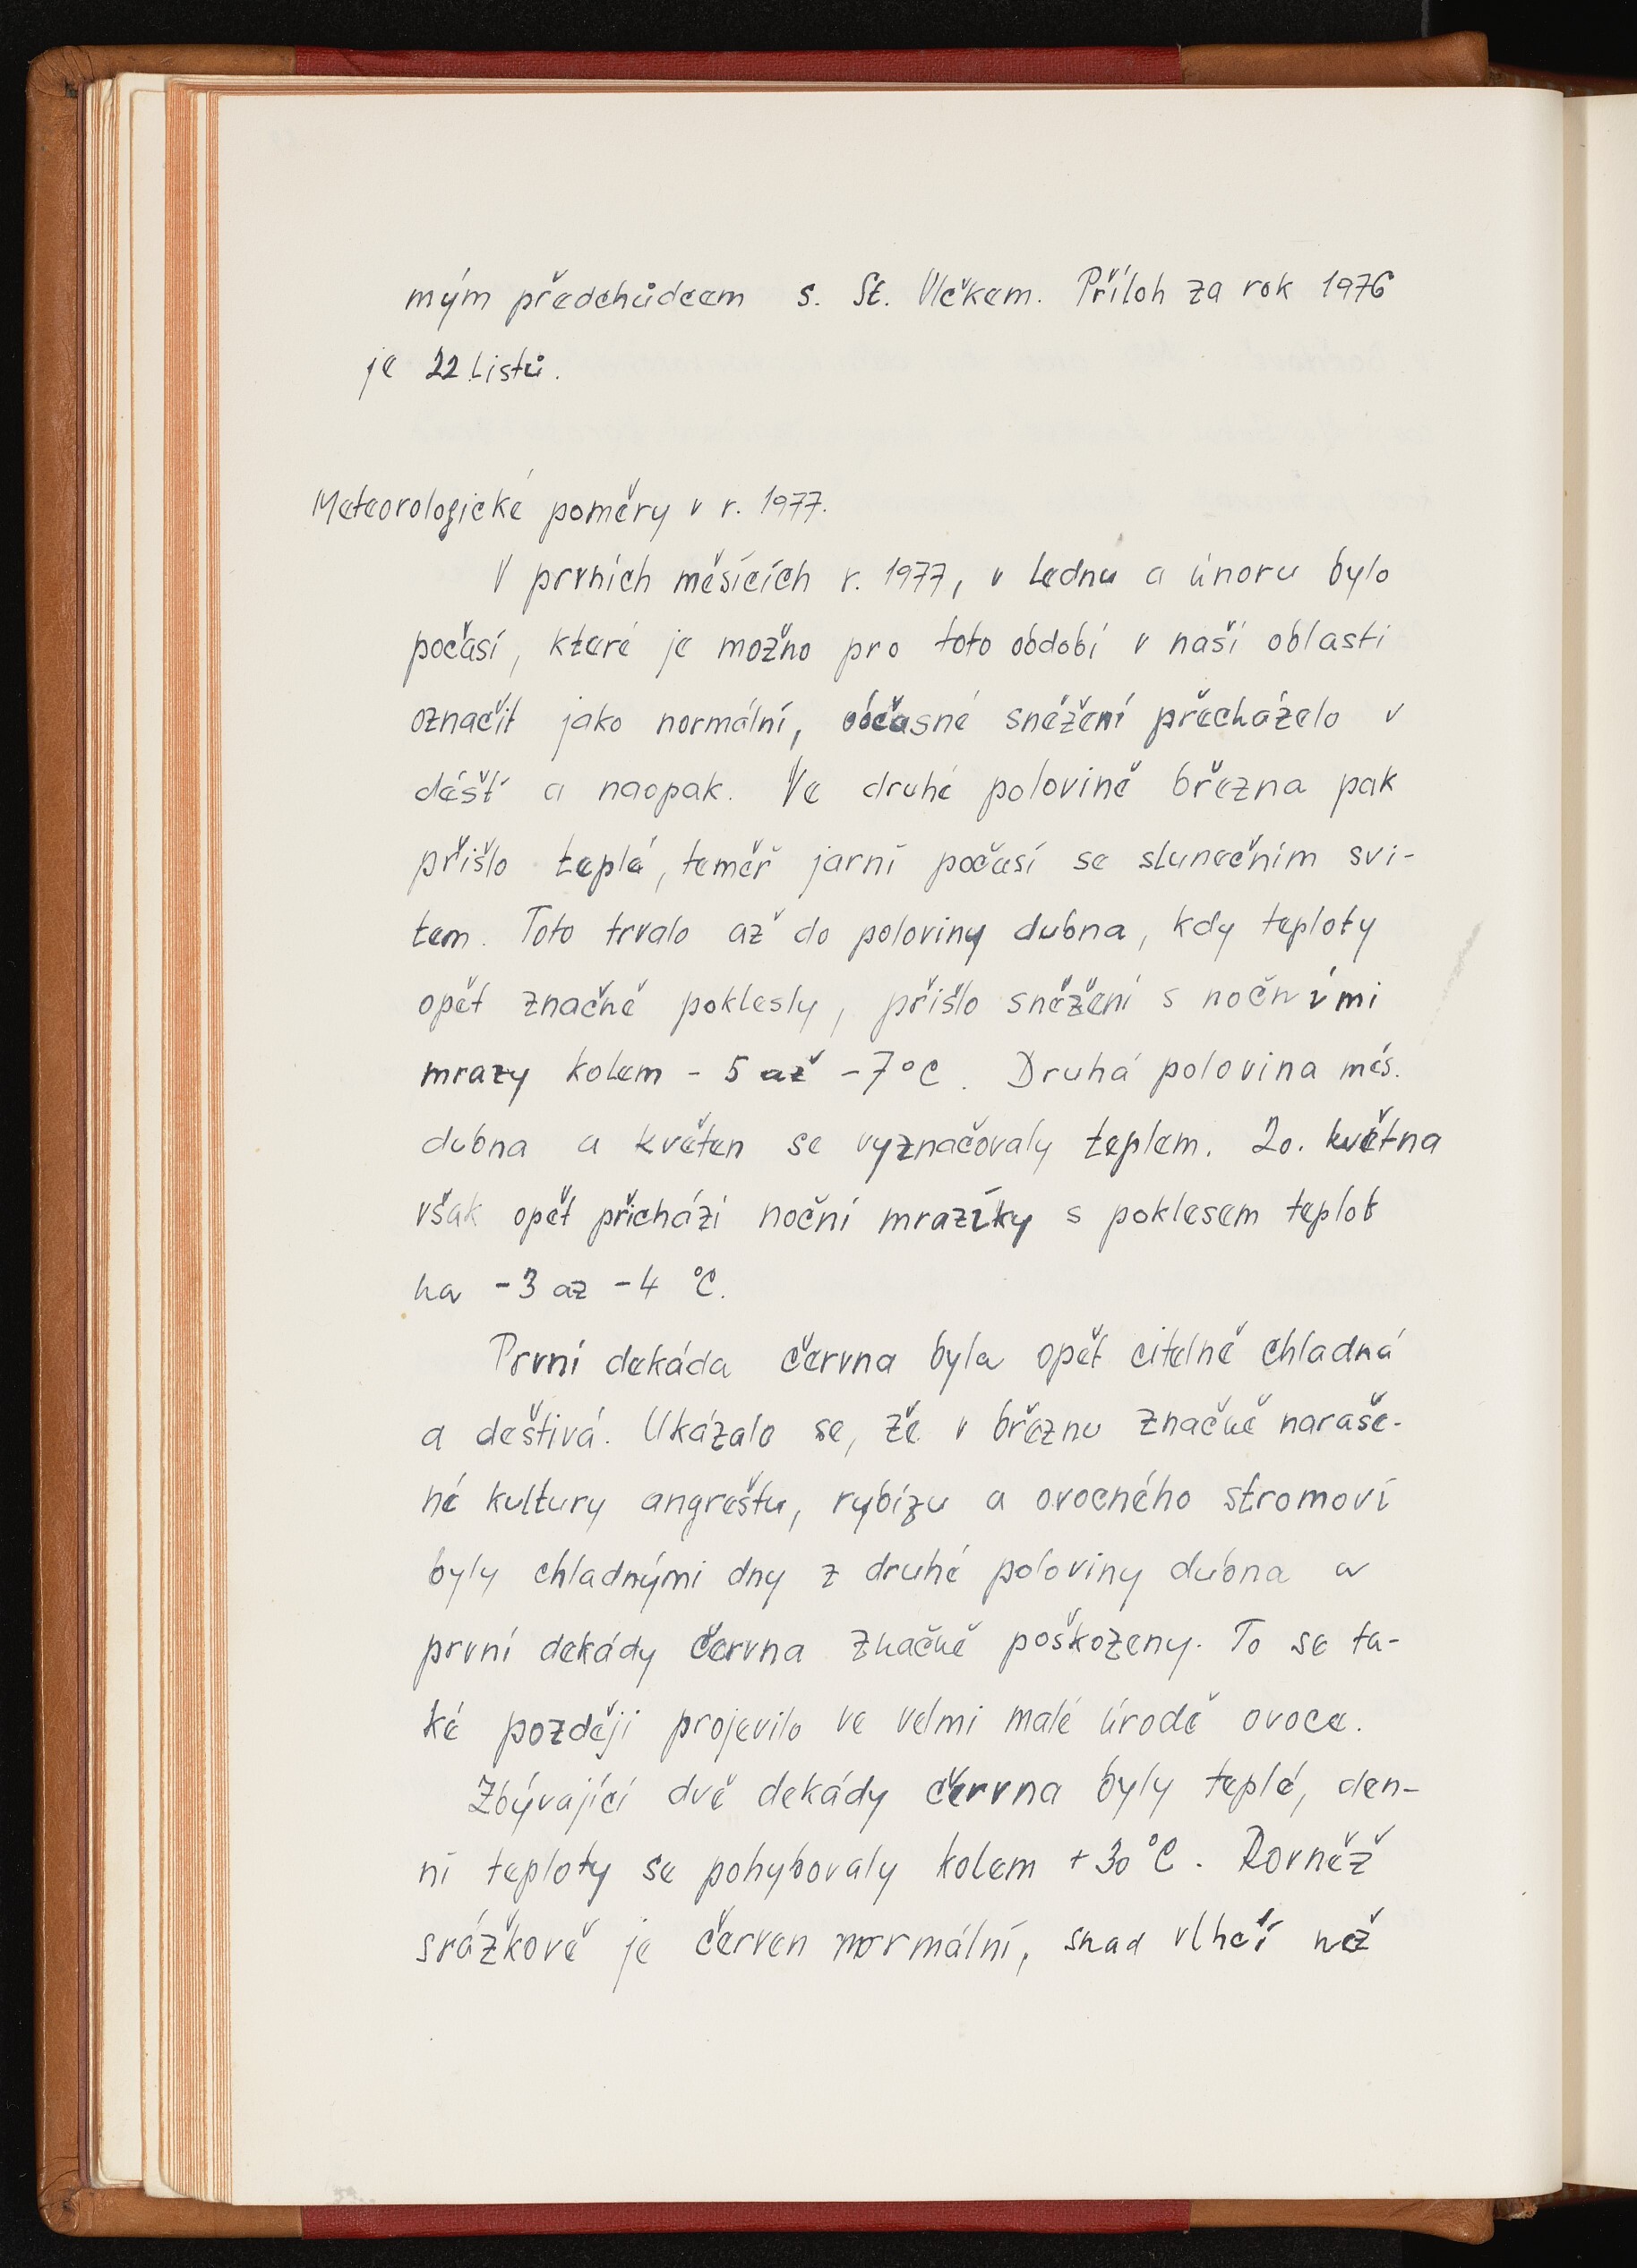 mým předchůdcem s. St. Vlčkem. Příloh za rok 1976
je 22 listů.
Meteorologické poměry v r. 1977.
V prvních měsících r. 1977, v lednu a únoru bylo
počasí, které je možno pro toto období v naší oblasti
označit jako normální, občasné sněžení přecházelo v
déšť a naopak. Ve druhé polovině března pak
přišlo teplé, teměř jarní počasí se slunečním svi-
tem. Toto trvalo až do poloviny dubna, kdy teploty
opět značně poklesly, přišlo sněžení s nočními
mrazy kolem - 5 až -7°C. Druhá polovina měs.
dubna a květen se vyznačovaly teplem. 20. května
však opět přichází noční mrazíky s poklesem teplot
na -3 az -4 °C.
První dekáda června byla opět citelně chladná
a deštivá. Ukázalo se, že v březnu značně naraše-
né kultury angreštu, rybízu a ovocného stromoví
byly chladnými dny z druhé poloviny dubna a
první dekády června značně poškozeny. To se ta-
ké později projevilo ve velmi malé úrodě ovoce.
Zbývající dvě dekády června byly teplé, den-
ní teploty se pohybovaly kolem +30°C. Rovněž
srážkově je červen normální, snad vlhčí než